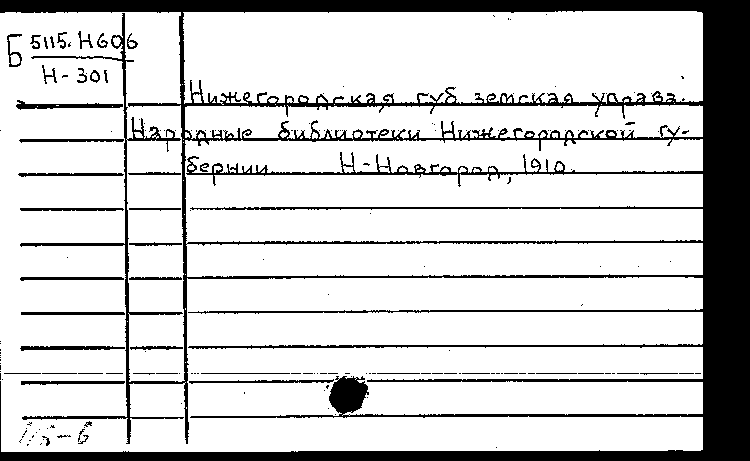 Б 5115. Н606
Н-301
Нижегородская губ. земская управа.
Народные библиотеки Нижегородской гу-
бернии. Н-Новгород, 1910.
115-6